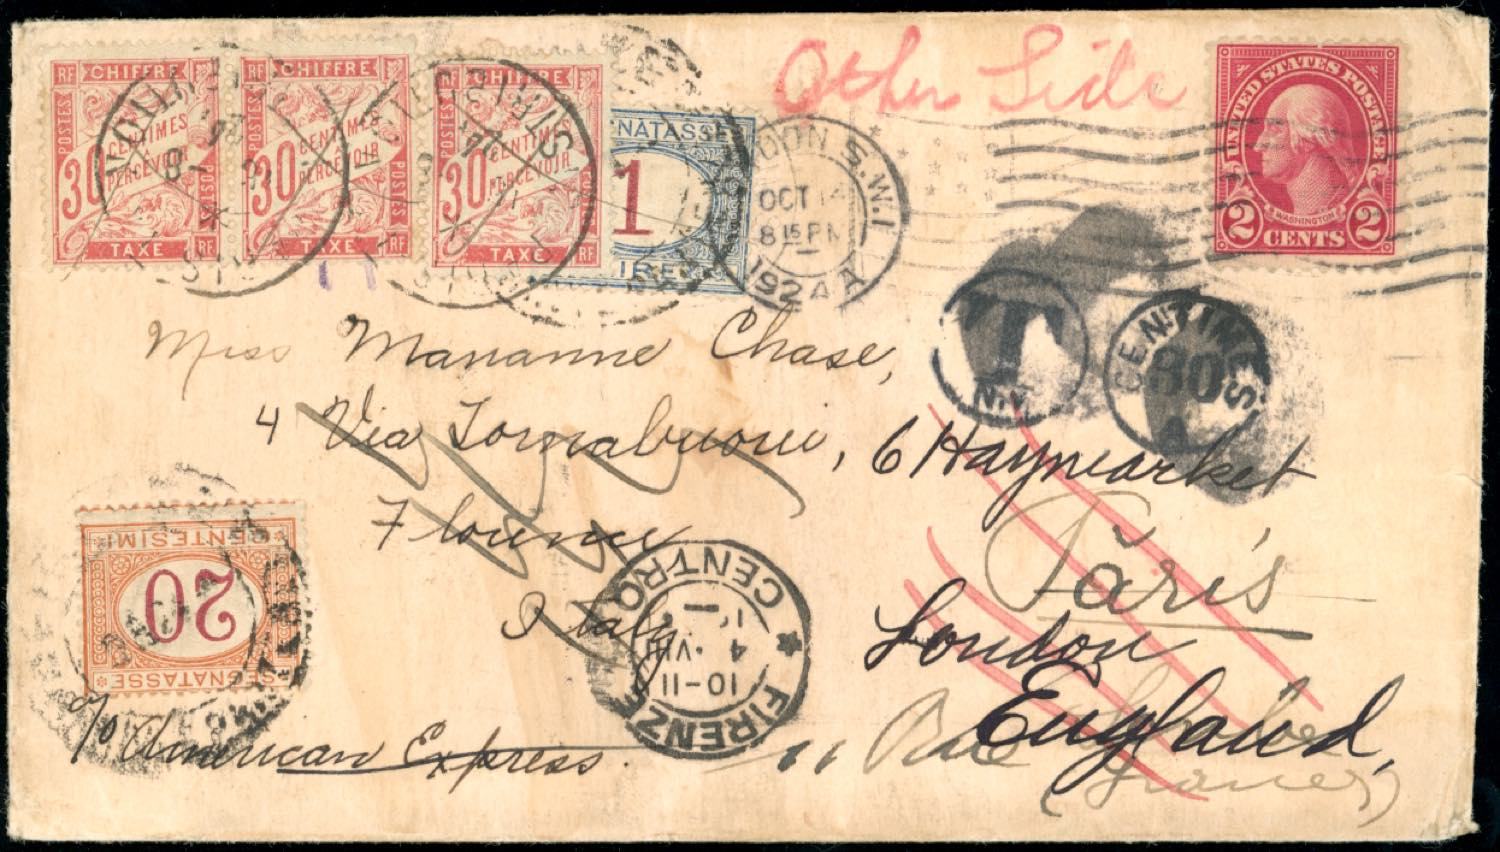 Other Side
RF CHIFFRE
POSTES
30 CENTIMES
PERCEVOIR
POSTES
TAXE RF
RF CHIFFRE
POSTES
30 CENTIMES
PERCEVOIR
POSTES
TAXE RF
RF CHIFFRE
POSTES
30 CENTIMES
PERCEVOIR
POSTES
TAXE RF
NATASSE
1
IRE
DON S.W.1
OCT 14
8 15 PM
1924
UNITED STATES POSTAGE
WASHINGTON
2 CENTS 2
T
N.Y.
CENTIMES
30
A
Miss Marianne Chase,
4 Via Tornabuoni,
Florence
Italy
c/o American Express.
6 Haymarket
London
England,
Paris
11 Rue
(France)
CENTESIMI
20
SEGNATASSE
FIRENZE
CENTRO
10-11
4 · VIII